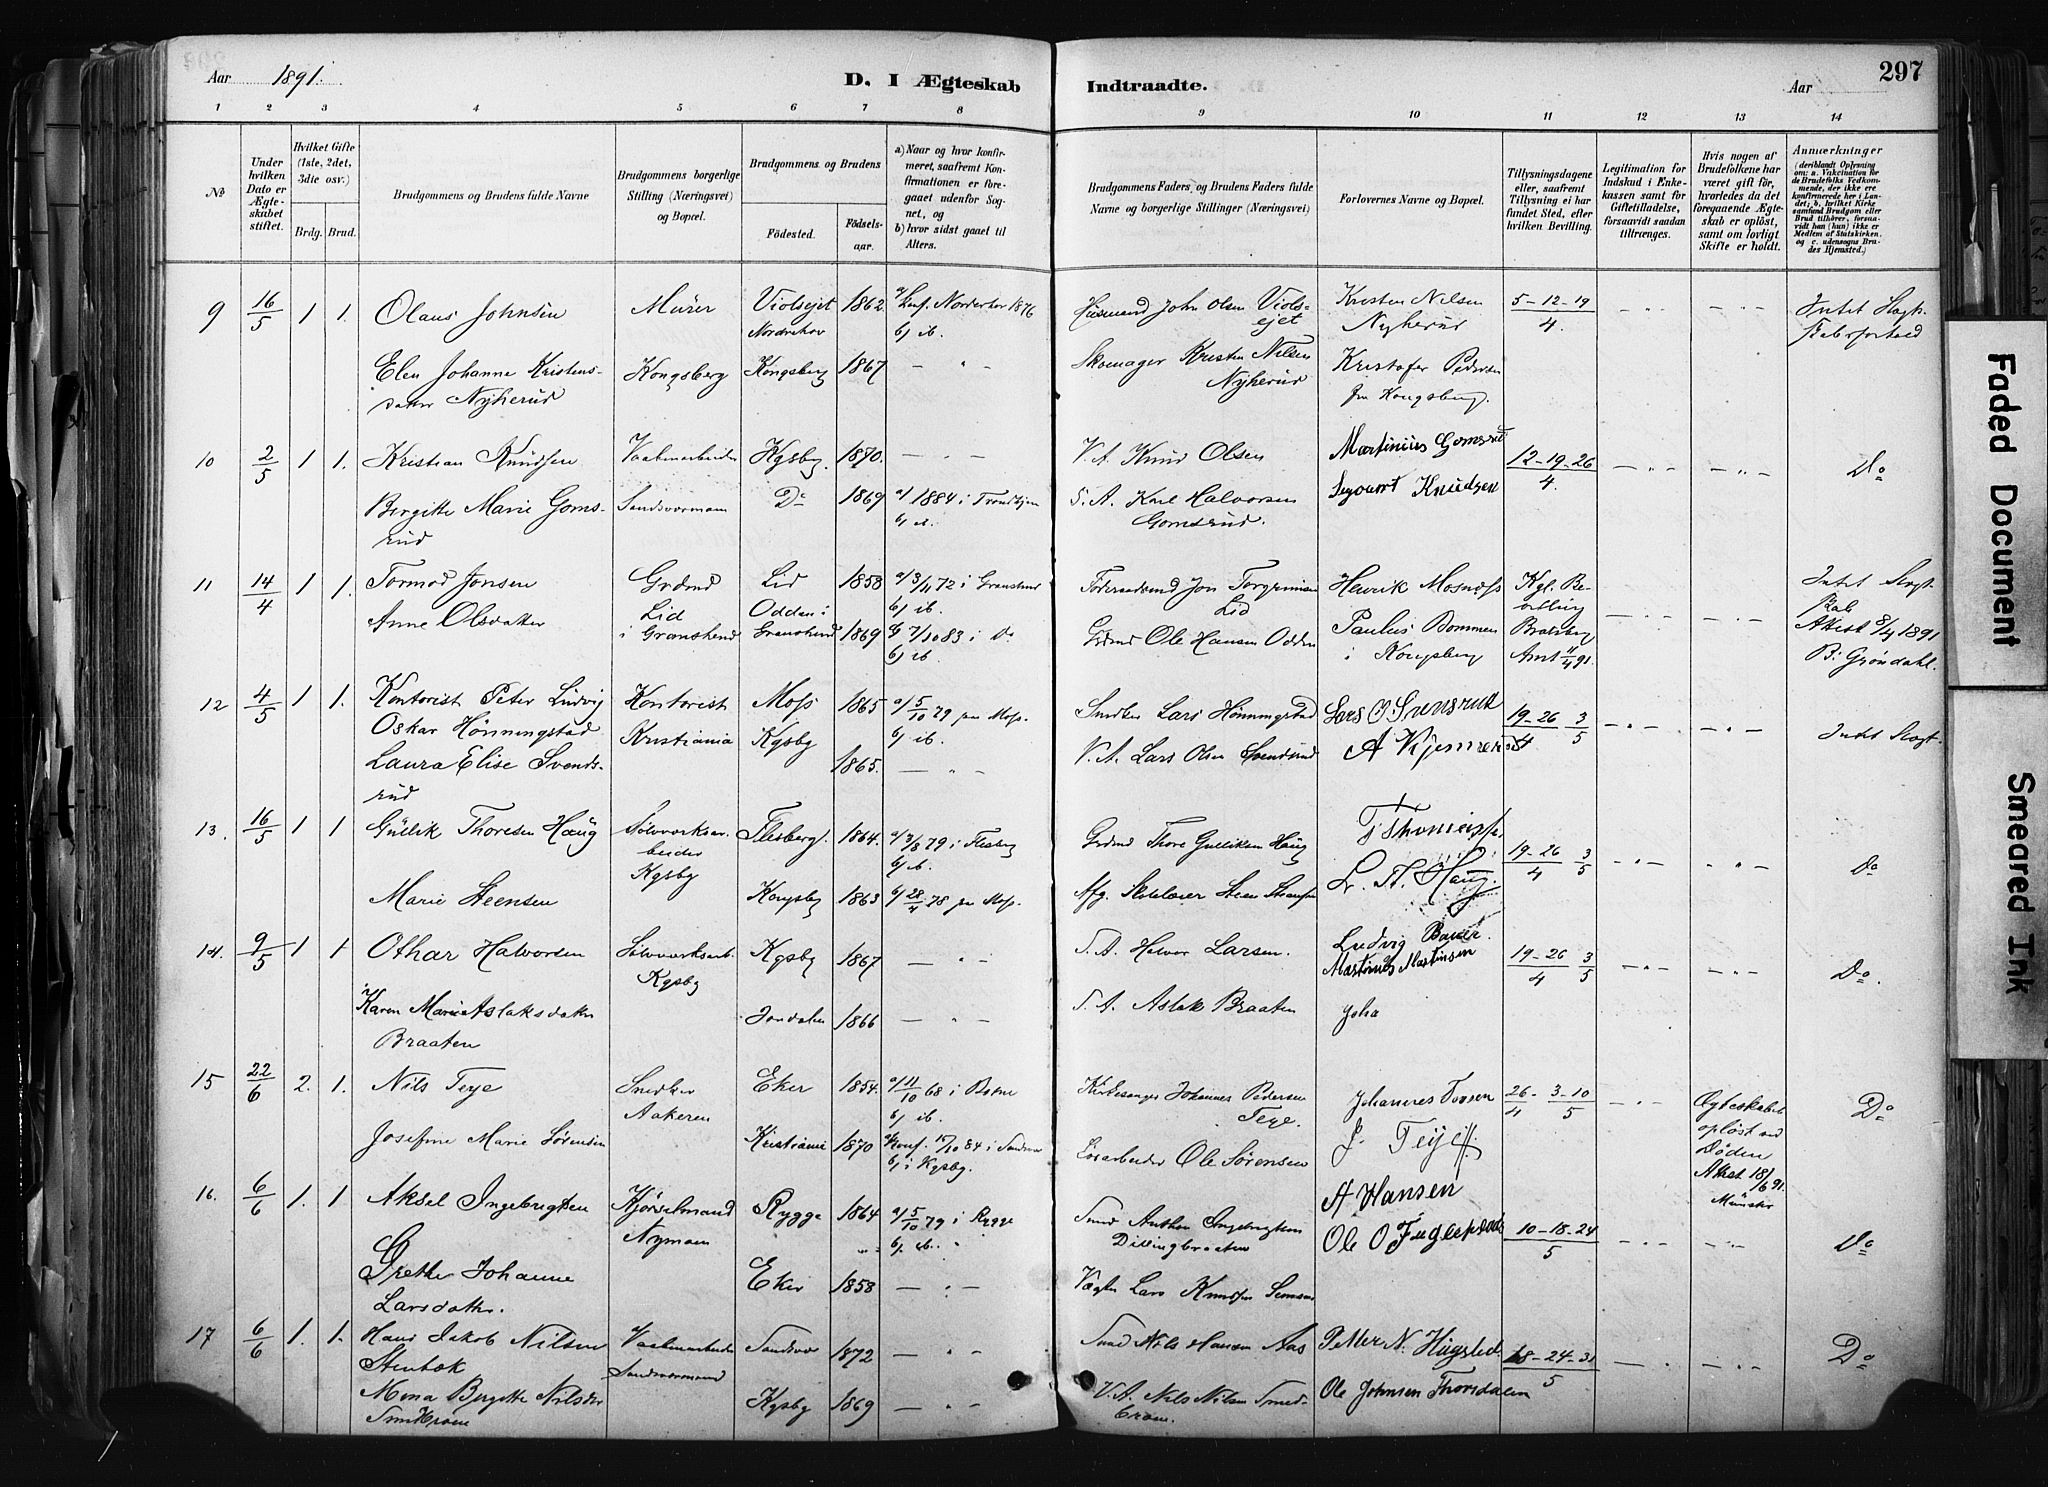 Aar 1891.
D. I Ægteskab
Indtraadte.
Aar
297
1 2 3 4 5 6 7 8
9 10 11 12 13 14
№
Under hvilken Dato er Ægteskabet stiftet.
Hvilket Gifte (1ste, 2det, 3die osv.)
Brdg. Brud.
Brudgommens og Brudens fulde Navne
Brudgommens borgerlige Stilling (Næringsvei) og Bopæl.
Brudgommens og Brudens
Fødested.
Fødselsaar.
a) Naar og hvor konfirmeret, saafremt Konfirmationen er foregaaet udenfor Sognet, og
b) hvor sidst gaaet til Alters.
Brudgommens Faders, og Brudens Faders fulde Navne og borgerlige Stillinger (Næringsvei)
Forlovernes Navne og Bopæl.
Tillysningsdagene eller, saafremt Tillysning ei har fundet Sted, efter hvilken Bevilling.
Legitimation for Indskud i Enkekassen samt for Giftetilladelse, forsaavidt saadan tiltrænges.
Hvis nogen af Brudefolkene har været gift før, hvorledes da det foregaaende Ægteskab er opløst, samt om lovligt Skifte er holdt.
Anmærkninger
(deriblandt Oplysning om: a. Vakcination for de Brudefolks Vedkommende, der ikke ere konfirmerede her i Landet; b. hvilket Kirkesamfund Brudgom eller Brud tilhører, forsaavidt han (hun) ikke er Medlem af Statskirken. og c. udensogns Brudes Hjemsted.
9 16/5 1 1. Olaus Johnsen Murer Violsejet Nordrehov 1862 a/ Konf. Norderhov 1876 b/ ib. Husmand John Olsen Violsejet Kristen Nilsen Nyherud 5-12-19/4. Intet Slagtskabsforhold
Elen Johanne Kristensdatter Nyherud Kongsberg Kongsberg 1867 Skomager Kristen Nilsen Nyherud Kristofer Pedersen fra Kongsberg.
10 2/5 1 1. Kristian Knudsen Vaabenarbeider Kgsbg. 1870. V. A. Knud Olsen Martinius Gomsrud 12-19-26/4. Do
Bergitte Marie Gomsrud Sandsværmoen Do 1869 a/ 1884 i Trondhjem b/ ib. S. A. Karl Halvorsen Gomsrud. Segvart Knudsen
11 14/4 1 1. Tormod Jonsen Grdmd Lid i Gransherd Lid 1858 a/ 3/11 72 i Gransherd b/ ib. Jon Torgrimsen Lid Henrik Mosnæss Kgl. Bevilling Bratsberg Amt 11/4 91. Intet Slagtskab Attest 8/4 1891 B. Grøndahl.
Anne Olsdatter Odden i Gransherd 1869 7/10 83 i Do b/ ib. Grdmd Ole Hansen Odden Paulus Bommen i Kongsberg
12 4/5 1 1. Kontorist Peter Ludvig Oskar Hönningstad Kontorist Kristiania Moss 1865 a/ 5/10 79 paa Moss. b/ ib. Snedker Lars Hönningstad Lars O Svensrud 19-26/4 3/5 Intet Slagt.
Laura Elise Svendsrud Kgsbg 1865. V. A. Lars Olsen Svendsrud
13. 16/5 1 1 Gullik Thoresen Haug Sölvverksarbeider Kgsbg Flesberg 1864. a/ 3/8 79 i Flesberg b/ ib. Grdmd Thore Gulliksen Haug 19-26/4 3/5 Do
Marie Steensen Kongsbg 1863 28/4 78 paa Moss. Afg. Skolelærer Steen Steensen L. Th. Haug.
14. 9/5 1 1 Othar Halvorsen Sölvverksarb. Kgsbg Kgsbg 1867 S. A. Halvor Larsen. Ludvig Bauer. Martinus Martinsen 19-26/4 3/5 Do.
Karen Marie Aslaksdatter Braaten Jondalen 1866 S. A. Aslak Braaten Joha
15 22/6 2. 1. Nils Teye Snedker Aakeren Eker 1854. a/ 11/10 68 i Botne b/ ib. Kirkesanger Johannes Pedersen Teye. 26/4 3-10/5 Ægteskabet opløst ved Døden Attest 18/6 91. Münster Do
Josefine Marie Sørensen Kristiania 1870 Konf. 15/10 84 i Sandsvær b/ i Kgsbg. Løsarbeider Ole Sørensen J. Teije
16. 6/6 1. 1 Aksel Ingebrigtsen Kjørselmand Nymoen Rygge 1864 a/ 5/10 79 i Rygge b/ ib. Smed Anthon Ingebrigtsen Dillingbraaten A Hansen 10-18-24/5 Do
Grethe Johanne Larsdatter. Eker 1858 Vægter Lars Knudsen Ole O
17 6/6 1. 1. Hans Jakob Nilsen Stenbæk Vaabenarbeider Sandsværmoen Sandsvær 1872 Smed Nils Hansen Aas Petter N. Hugsted. 18-24-31/5 Do
Mona Birgitte Nilsdtr Smedkroen Kgsbg 1869 V. A. Nils Nilsen Smedkroen. Ole Johnsen Thorsdalen
Faded Document
Smeared Ink